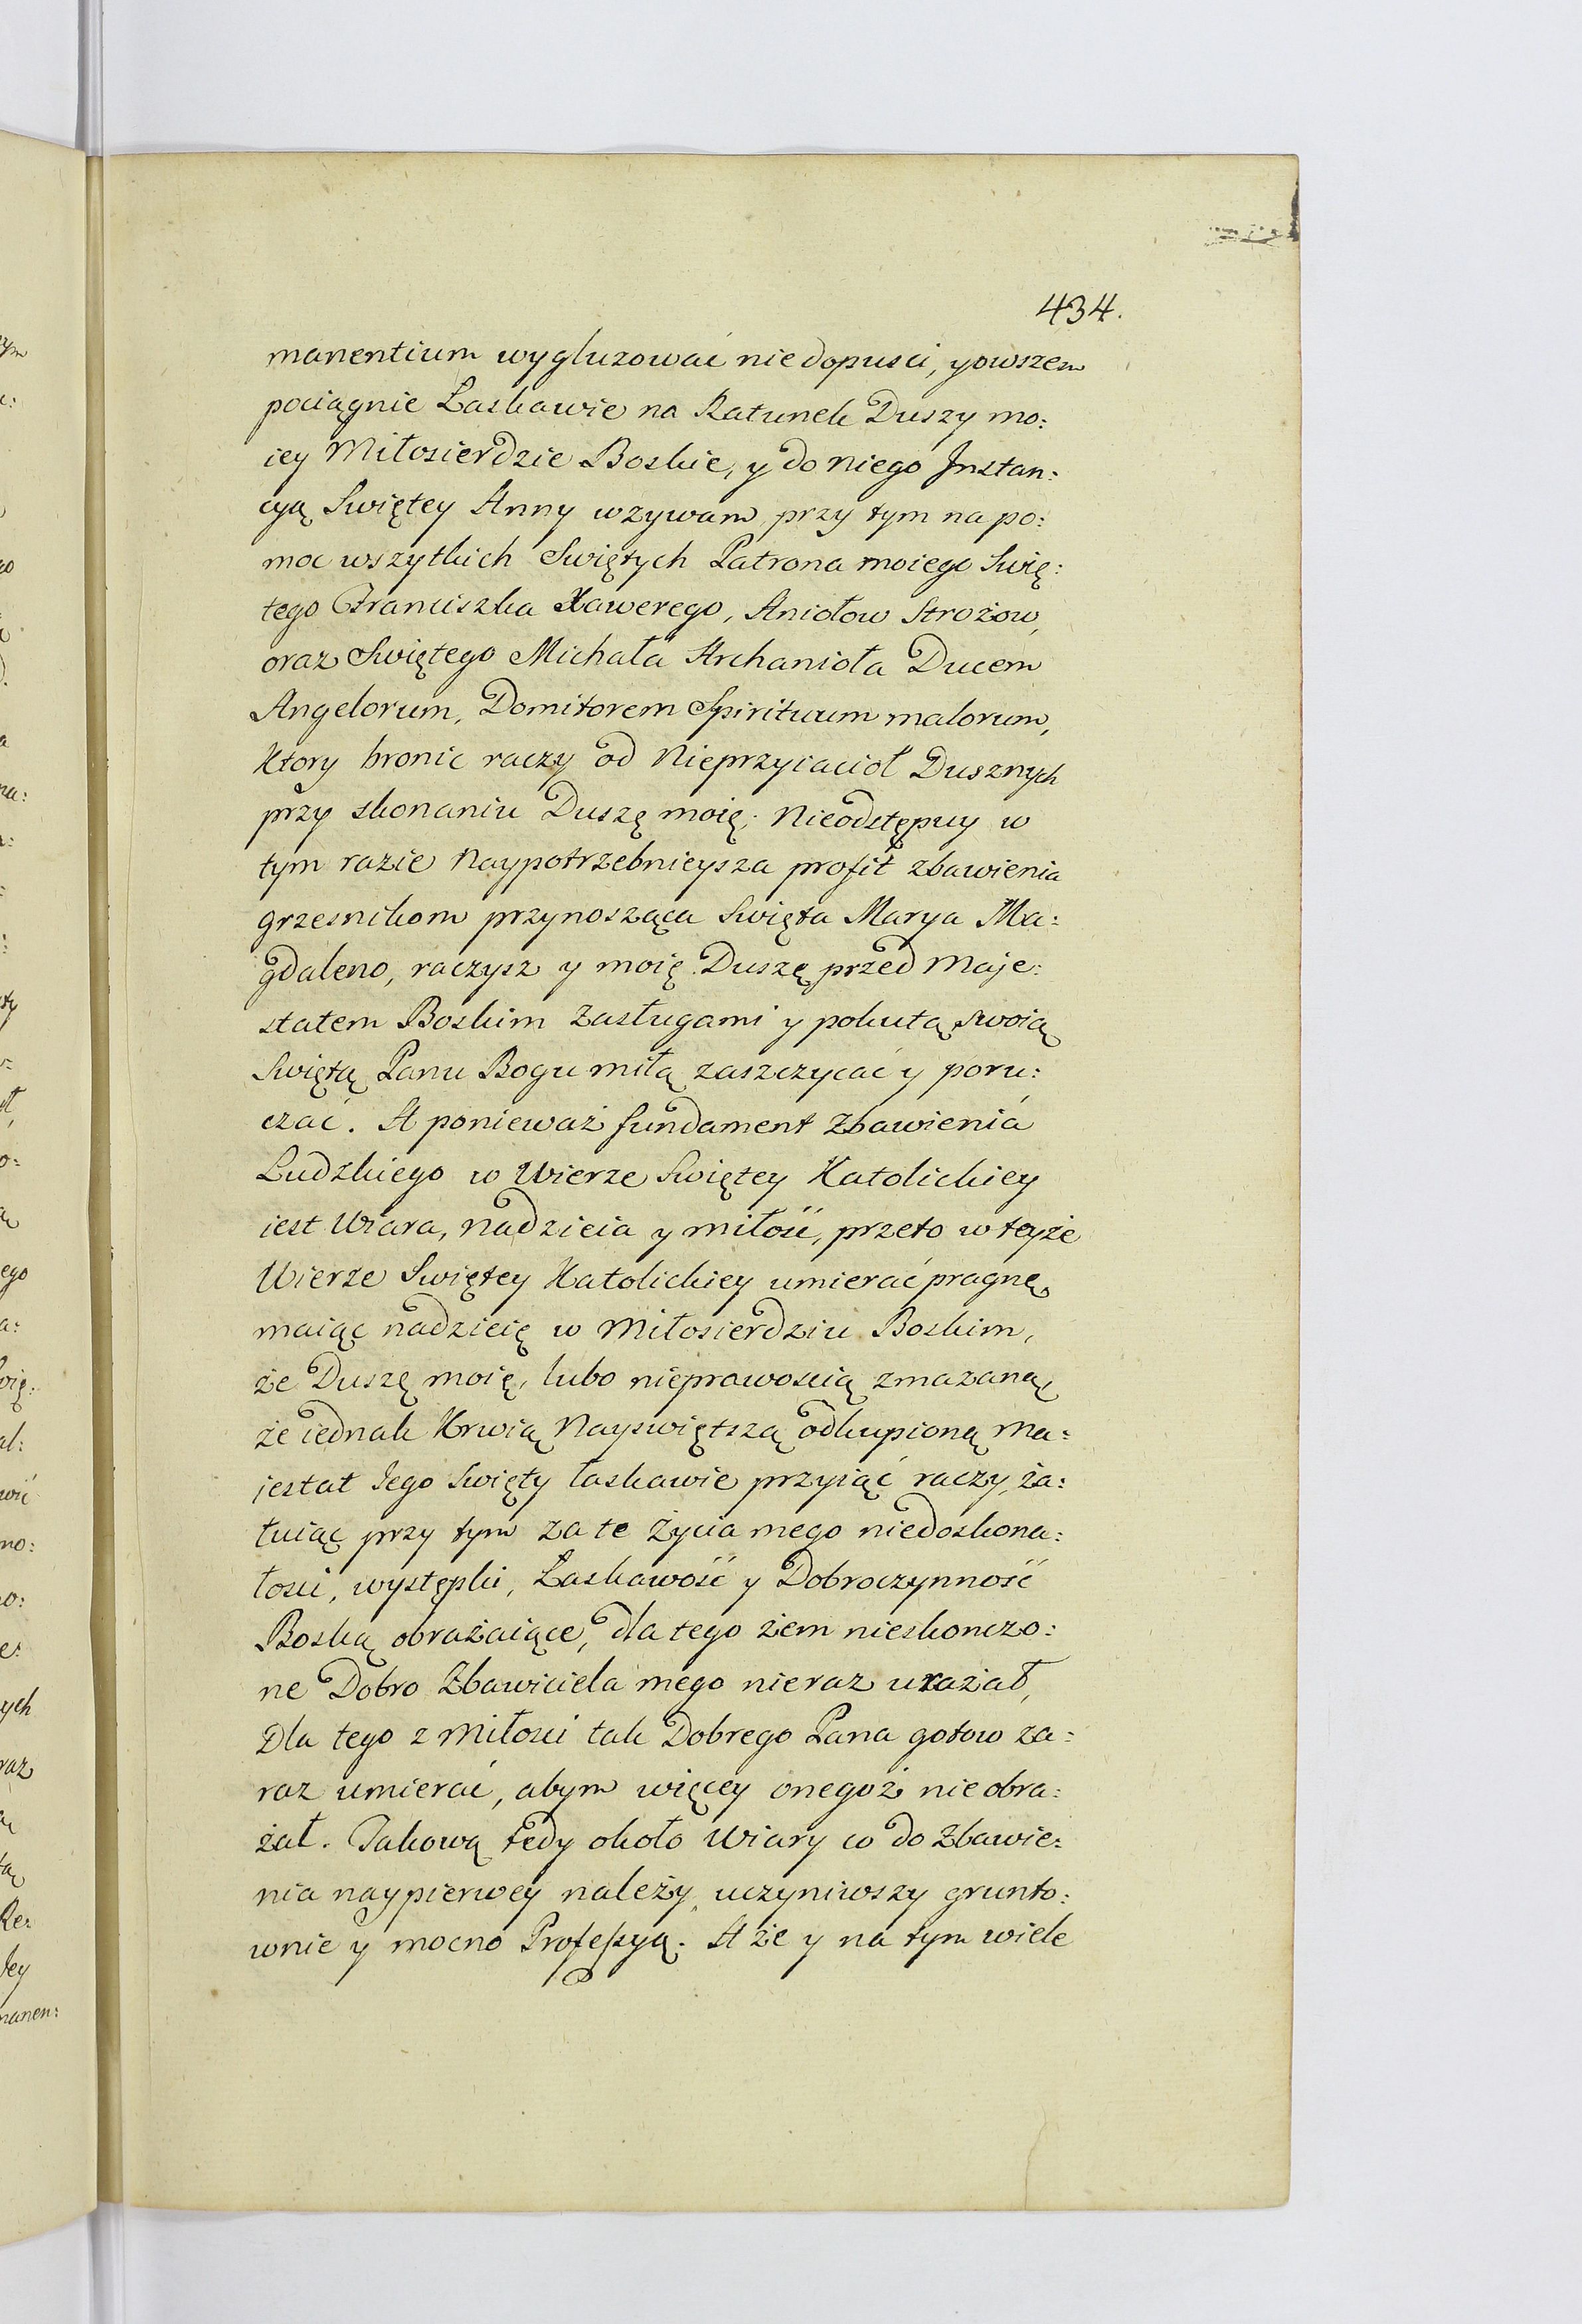 434.
manentium wygluzować niedopusci, yowszem
pociągnie Łaskawie na Ratunek Duszy mo:
iey Miłosierdzie Boskie, y do niego Jnstan:
cyą Swiętey Anny wzywam, przy tym na po:
moc wszytkich Swiętych Patrona moiego Swię:
tego Franciszka Xawerego, Aniołow Strożow,
oraz Swiętego Michała Archanioła Ducem
Angelorum, Domitorem Spirituum malorum,
Ktory bronic raczy od Nieprzyiacioł Dusznych
przy skonaniu Duszę moię. Nieodstępuy w
tym razie Naypotrzebnieysza profit zbawienia
grzesnikom przynosząca Swięta Marya Ma:
gdaleno, raczysz y moię Duszę przed Maje:
statem Boskim zasługami y pokutą swoią
Swiętą Panu Bogu miłą zaszczycać y poru:
czać. A ponieważ fundament Zbawienia
Ludzkiego w Wierze Swiętey Katolickiey
iest Wiara, Nadzieia y miłość, przeto w teyże
Wierze Swiętey Katolickiey umierać pragnę,
maiąc nadzieię w Miłosierdziu Boskim,
że Duszę moię, lubo nieprawoscią zmazaną,
że iednak Krwią Nayswiętszą odkupioną Ma:
jestat Jego Swięty łaskawie przyiąć raczy, ża:
łuiąc przy tym za te Życia mego niedoskona:
łosci, występki, Łaskawość y Dobroczynność
Boską obrażaiące, dla tego żem nieskonczo:
ne Dobro Zbawiciela mego nieraz urażał,
Dla tego z Miłosci tak Dobrego Pana gotow za:
raz umierać, abym więcey onegoż nie obra:
żał. Takową tedy około Wiary co do Zbawie:
nia naypierwey należy, uczyniwszy grunto:
wnie y mocno Professyą. A że y na tym wiele